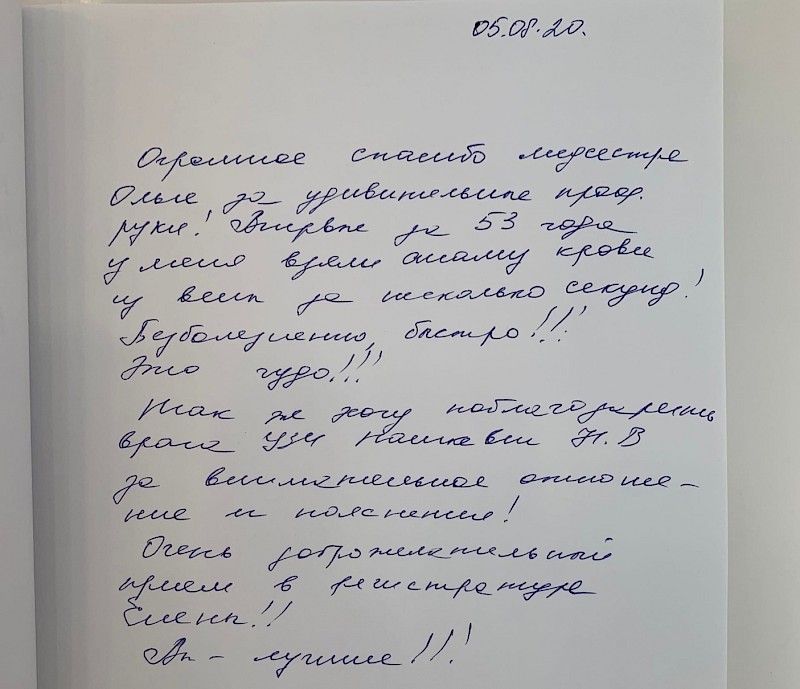 05.08.20.
Огромное спасибо медсестре
Ольге за удивительные проф.
руки! Впервые за 53 года
у меня взяли анализ крови
из вены за несколько секунд!
Безболезненно, быстро!!!
Это чудо!!!
Так же хочу поблагодарить
врача УЗИ Н.В
за внимательное отноше-
ние и пояснения!
Очень доброжелательный
прием в регистратуре
Елены!!
Вы - лучшие!!!